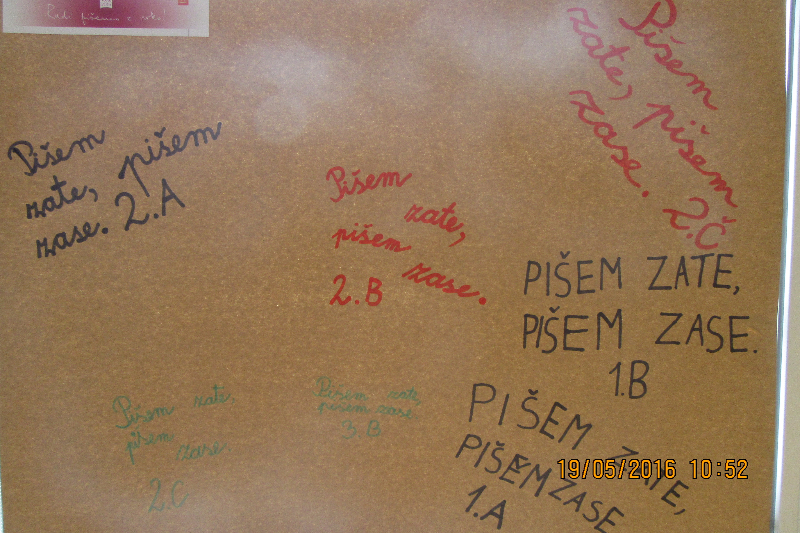 Radi pišemo z roko!
Pišem
zate, pišem
zase. 2.A
Pišem
zate,
pišem
zase.
2.B
Pišem
zate, pišem
zase. 2.Č
PIŠEM ZATE,
PIŠEM ZASE.
1.B
Pišem zate,
pišem zase.
2.C
Pišem zate,
pišem zase.
3.B
PIŠEM ZATE,
PIŠEM ZASE
1.A
19/05/2016 10:52